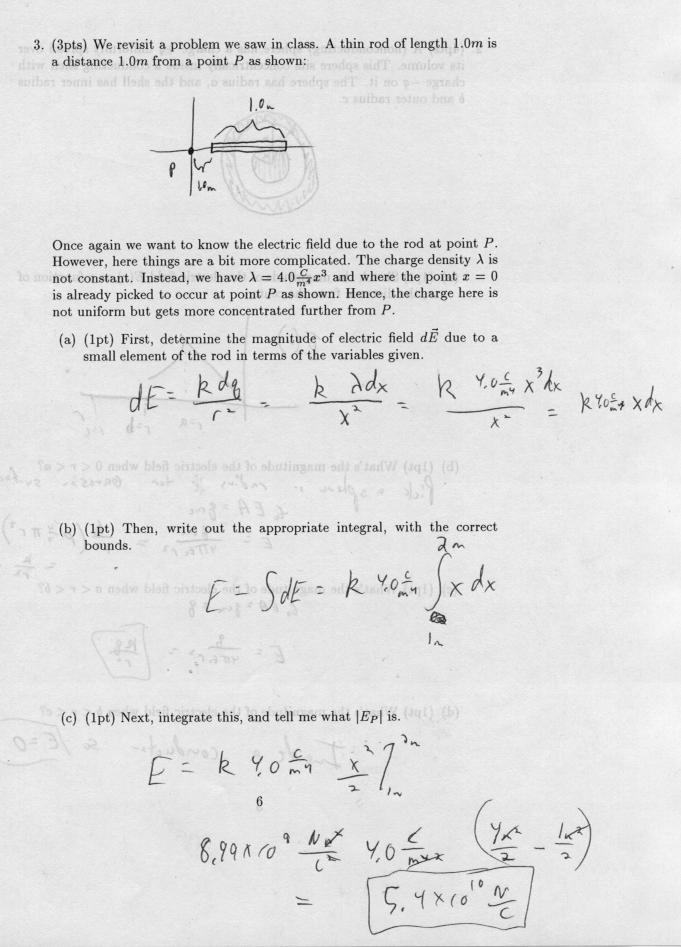 3. (3pts) We revisit a problem we saw in class. A thin rod of length 1.0m is
a distance 1.0m from a point P as shown:
1.0m
P
1.0m
Once again we want to know the electric field due to the rod at point P.
However, here things are a bit more complicated. The charge density λ is
not constant. Instead, we have λ = 4.0 C/m⁴ x³ and where the point x = 0
is already picked to occur at point P as shown. Hence, the charge here is
not uniform but gets more concentrated further from P.
(a) (1pt) First, determine the magnitude of electric field dE⃗ due to a
small element of the rod in terms of the variables given.
dE = k dq / r² = k λdx / x² = k 4.0 C/m⁴ x³ dx / x² = k 4.0 C/m⁴ x dx
(b) (1pt) Then, write out the appropriate integral, with the correct
bounds.
2m
E = ∫dE = k 4.0 C/m⁴ ∫ x dx
1m
(c) (1pt) Next, integrate this, and tell me what |E_P| is.
E = k 4.0 C/m⁴ x²/2 ]
2m
1m
6
8.99 x 10⁹ N m²/C² 4.0 C/m⁴ (4m²/2 - 1m²/2)
= 5.4 x 10¹⁰ N/C